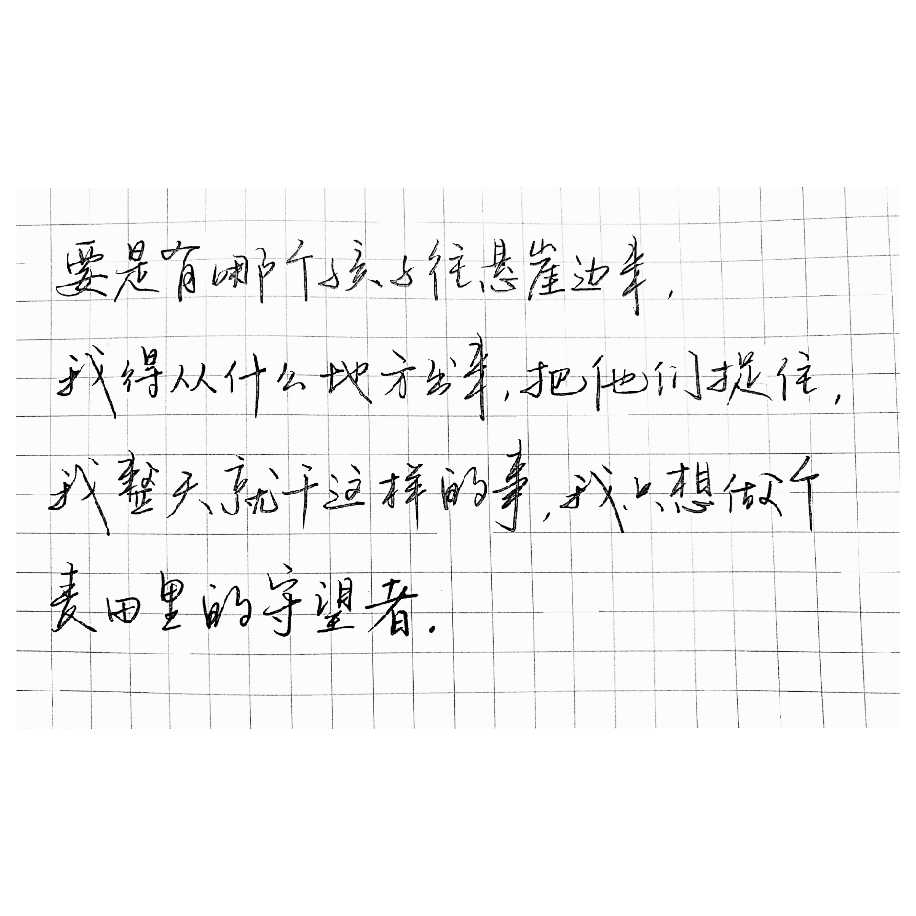 要是有哪个孩子往悬崖边来,
我得从什么地方出来,把他们捉住,
我整天就干这样的事,我只想做个
麦田里的守望者.